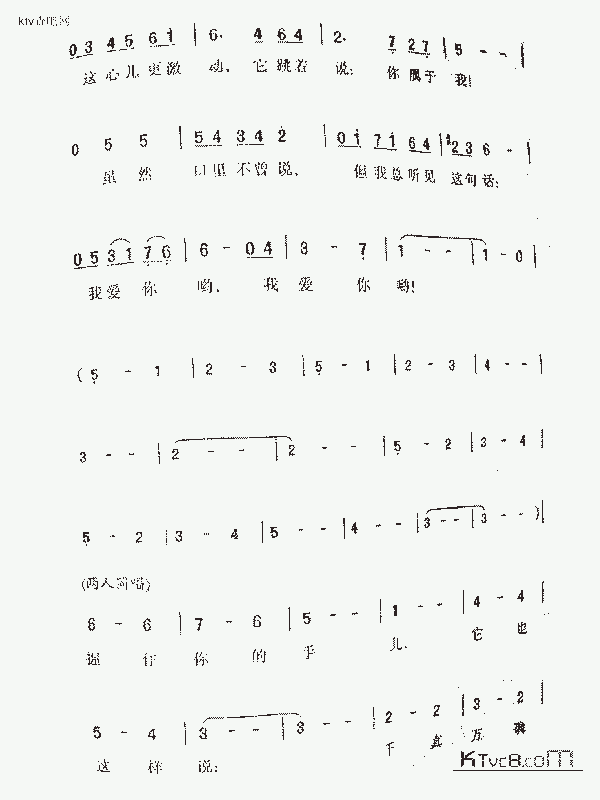 0 3 4 5 6 1 | 6· 4 6 4 | 2· 7 2 7 | 5 - - |
这心儿更激动，它跳着说：你属于我！
0 5 5 | 5 4 3 4 2 | 0 1 7 1 6 4 | 2 3 6 - |
虽然口里不曾说，但我总听见这句话：
0 5 3 1 7 6 | 6 - 0 4 | 3 - 7 | 1 - - | 1 - 0 |
我爱你哟，我爱你哟！
( 5 - 1 | 2 - 3 | 5 - 1 | 2 - 3 | 4 - - |
3 - - | 2 - - | 2 - - | 5 - 2 | 3 - 4 |
5 - 2 | 3 - 4 | 5 - - | 4 - - | 3 - - | 3 - - ) |
(两人同唱)
6 - 6 | 7 - 6 | 5 - - | 1 - - | 4 - 4 |
握住你的手儿，它也
5 - 4 | 3 - - | 3 - - | 2 - 2 | 3 - 2 |
这样说：千真万确
KTvc8.com